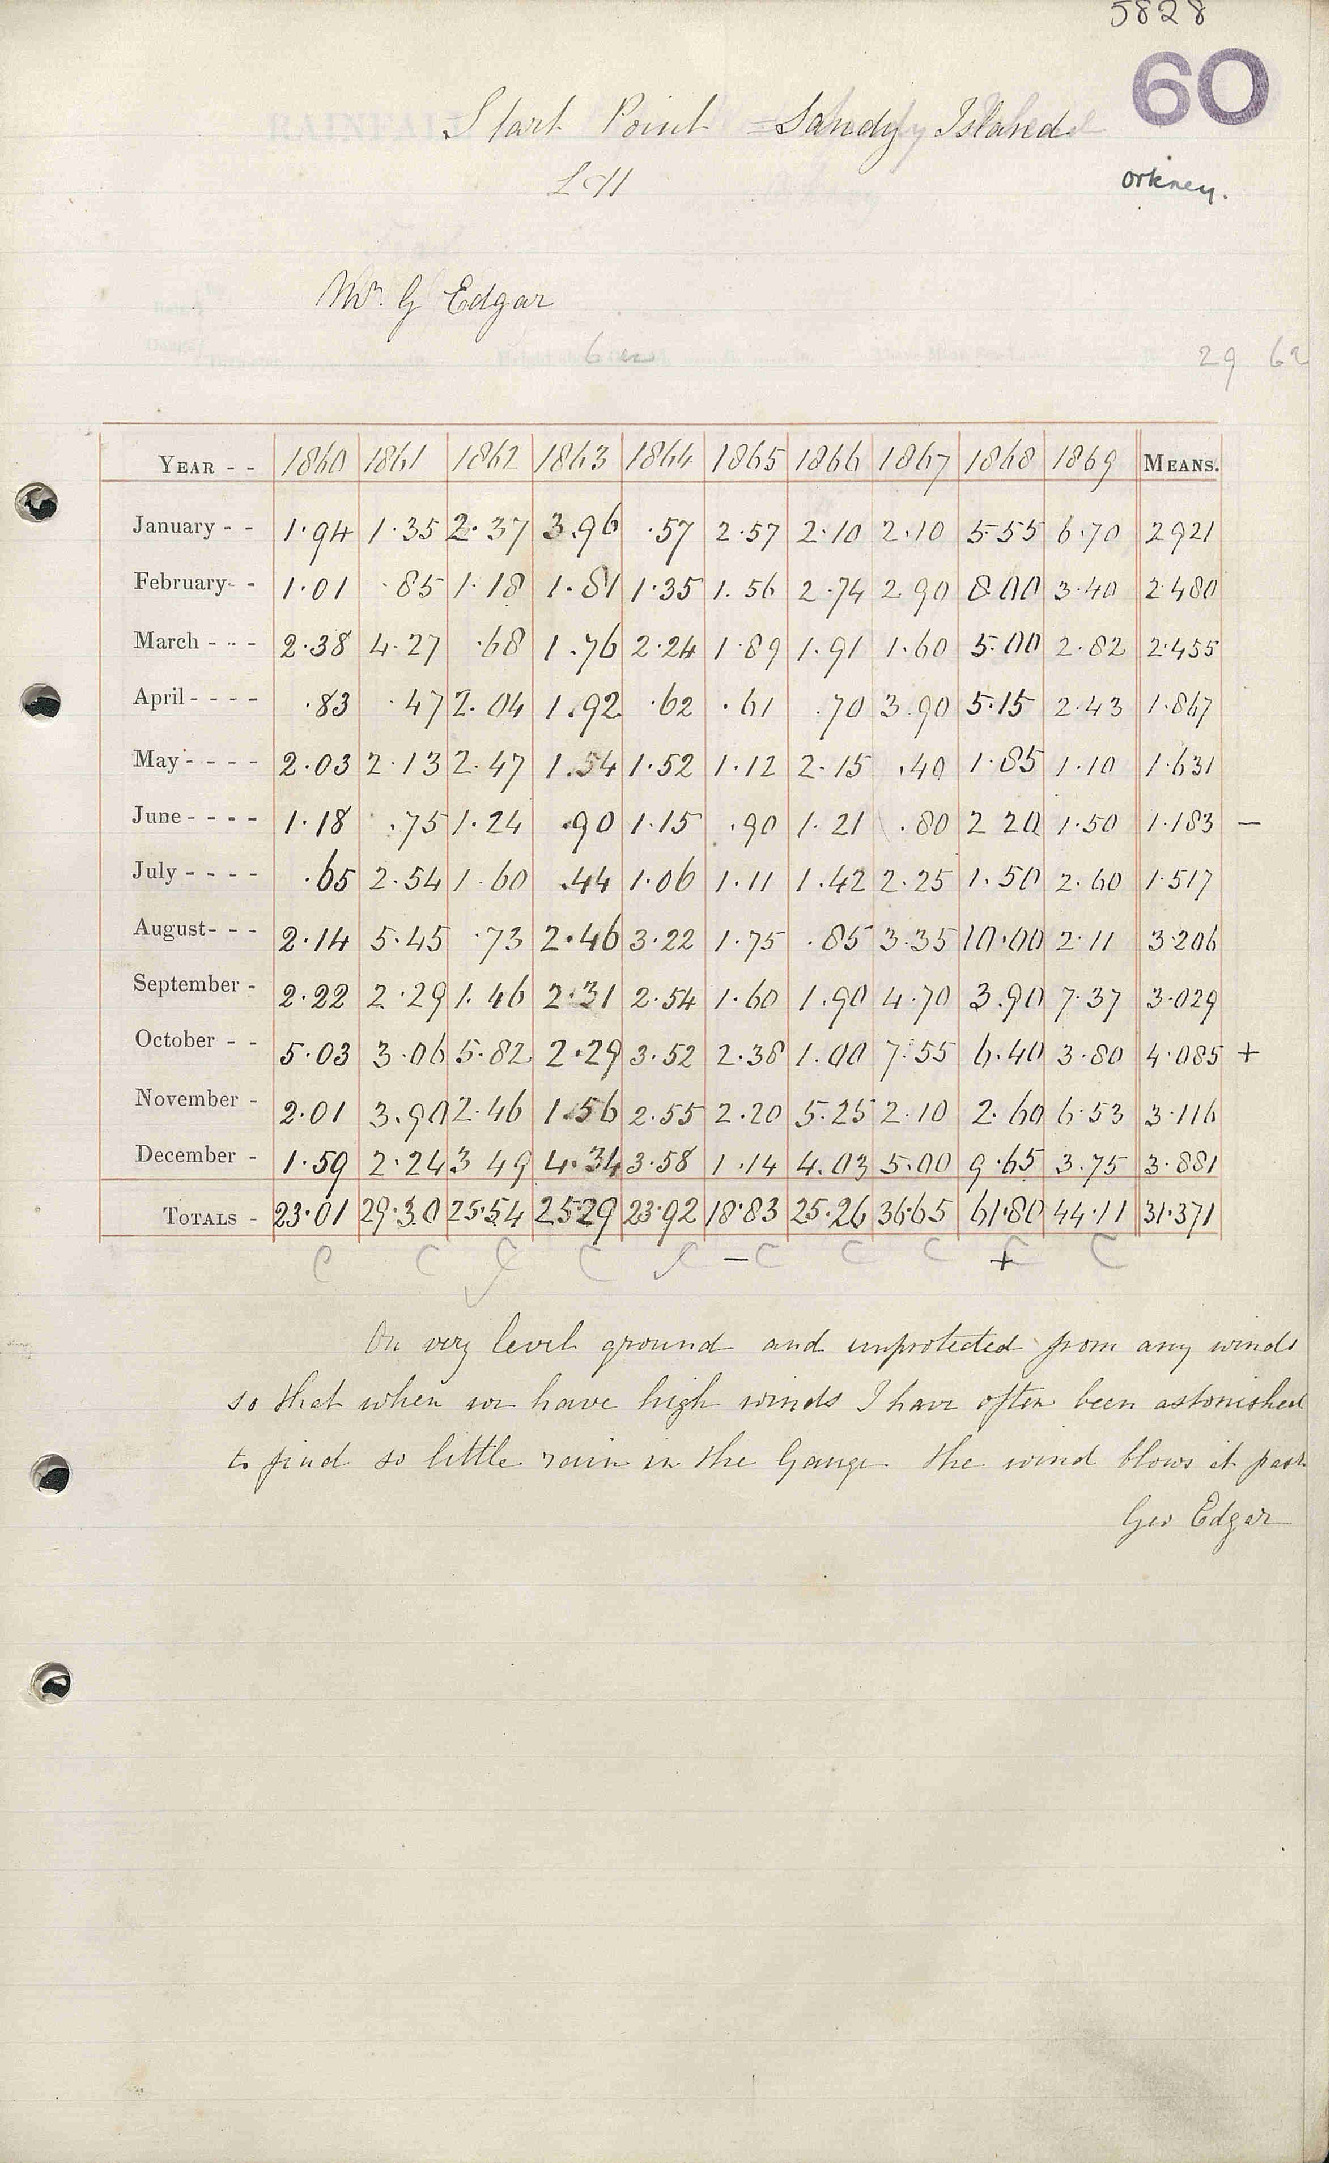 5828
60
Start Point = Sandy Island
L H
Orkney.
Mr. G Edgar
6 in
29 62
YEAR - - 1860 1861 1862 1863 1864 1865 1866 1867 1868 1869 MEANS.
January - - 1.94 1.35 2.37 3.96 .57 2.57 2.10 2.10 5.55 6.70 2921
February- - 1.01 .85 1.18 1.81 1.35 1.56 2.74 2.90 8.00 3.40 2.480
March - - - 2.38 4.27 .68 1.76 2.24 1.89 1.91 1.60 5.00 2.82 2.455
April - - - - .83 .47 2.04 1.92 .62 .61 .70 3.90 5.15 2.43 1.867
May - - - - 2.03 2.13 2.47 1.54 1.52 1.12 2.15 .40 1.85 1.10 1.631
June - - - - 1.18 .75 1.24 .90 1.15 .90 1.21 .80 2 20 1.50 1.183 -
July - - - - .65 2.54 1.60 .44 1.06 1.11 1.42 2.25 1.50 2.60 1.517
August- - - 2.14 5.45 .73 2.46 3.22 1.75 .85 3.35 10.00 2.11 3.206
September - 2.22 2.29 1.46 2.31 2.54 1.60 1.90 4.70 3.90 7.37 3.029
October - - 5.03 3.06 5.82 2.29 3.52 2.38 1.00 7.55 6.40 3.80 4.085 +
November - 2.01 3.90 2.46 1.56 2.55 2.20 5.25 2.10 2.60 6.53 3.116
December - 1.59 2.24 3 49 4.34 3.58 1.14 4.03 5.00 9.65 3.75 3.881
TOTALS - 23.01 29.30 25.54 25.29 23.92 18.83 25.26 36.65 61.80 44.11 31.371
C C C C C - C C C + C C
On very level ground and unprotected from any winds
so that when we have high winds I have often been astonished
to find so little rain in the Gauge the wind blows it past
Geo Edgar